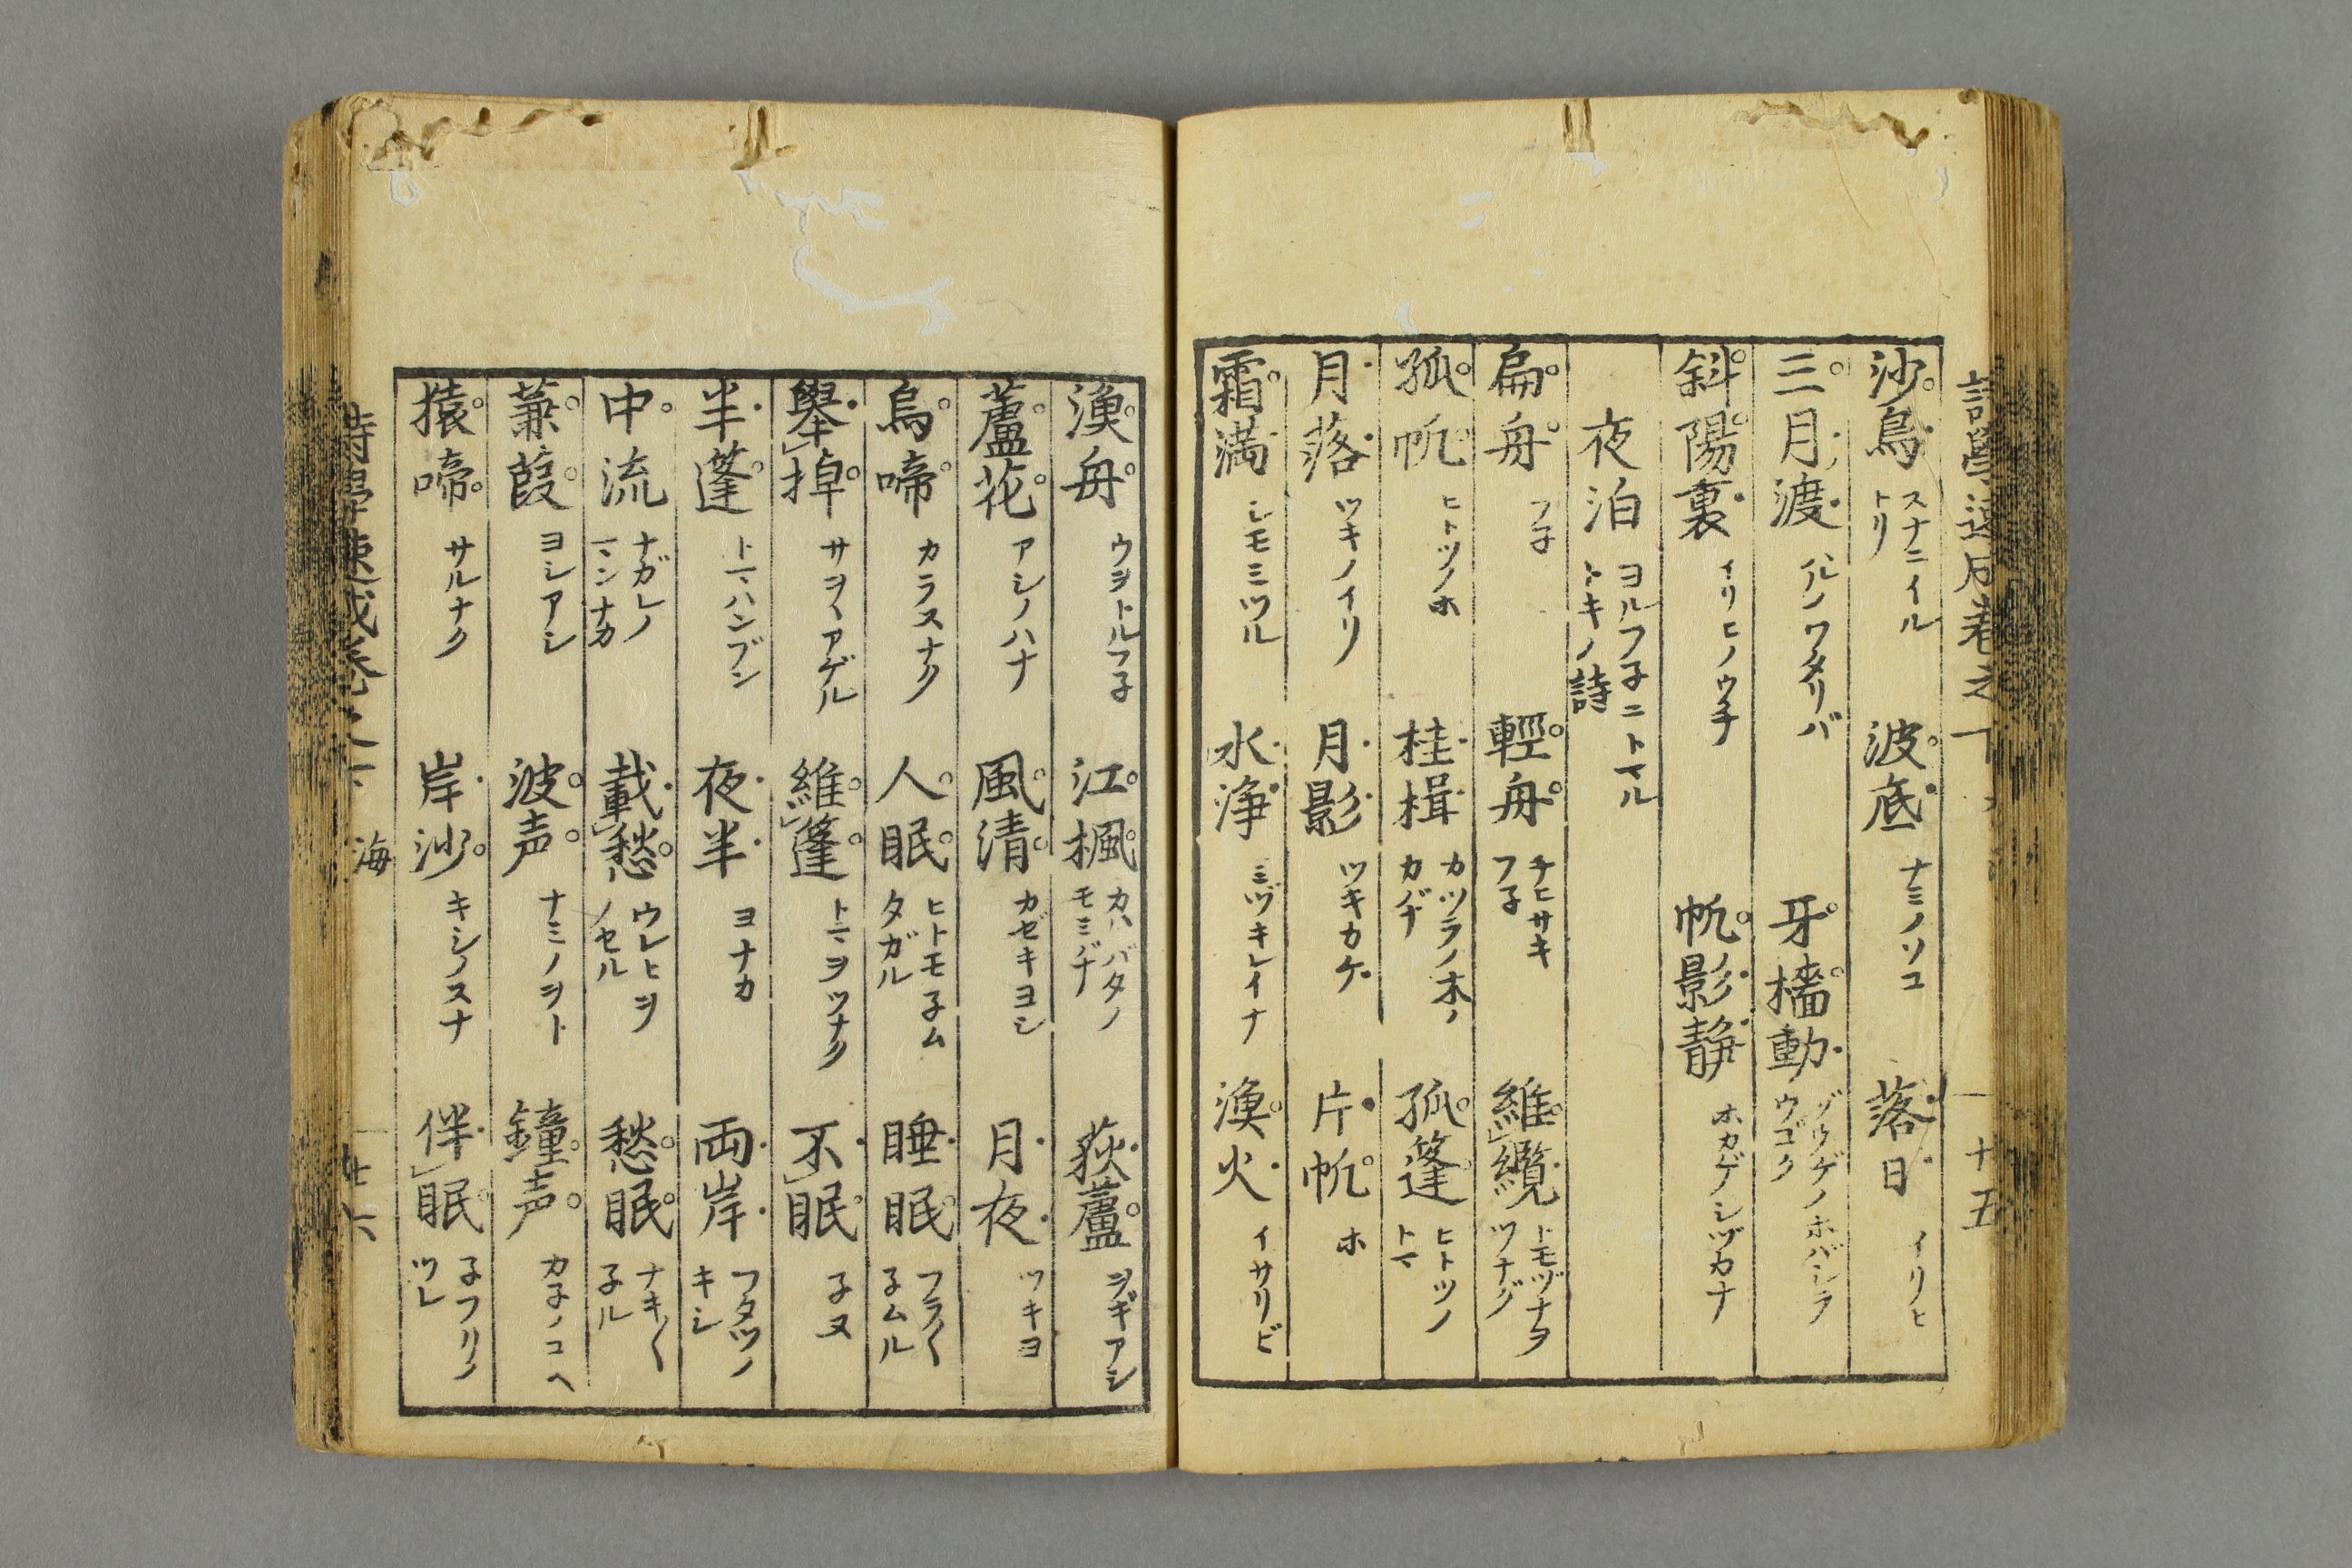 沙鳥 スナニイルトリ 波底 ナミノソコ 落日 イリヒ
三月渡 ノワタリバ 牙檣動 ゾウゲノホバシラウゴク
斜陽裏 イリヒノウチ 帆影静 ホカゲシヅカナ
夜泊 ヨルフ子ニトマルトキノ詩
扁舟 フ子 輕舟 チヒサキフ子 維纜 トモヅナヲツナグ
孤帆 ヒトツノホ 桂楫 カツラノ木ノカヂ 孤篷 ヒトツノトマ
月落 ツキノイリ 月影 ツキカケ 片帆 ホ
霜満 シモミツル 水浄 ミヅキレイナ 漁火 イサリビ
十五
漁舟 ウヲトルフ子 江楓 カハバタノモミヂ 荻蘆 ヲギアシ
蘆花 アシノハナ 風清 カゼキヨシ 月夜 ツキヨ
烏啼 カラスナク 人眠 ヒトモ子ムタガル 睡眠 フラ〱子ムル
舉掉 サヲヽアゲル 維篷 トマヲツナク 不眠 子ヌ
半篷 トマハンブン 夜半 ヨナカ 両岸 フタツノキシ
中流 ナガレノマンナカ 載愁 ウレヒヲノセル 愁眠 ナキ〱子ル
蒹葭 ヨシアシ 波声 ナミノヲト 鐘声 カ子ノコヘ
猿啼 サルナク 岸沙 キシノスナ 伴眠 子フリノツレ
詩學速成卷之下 海